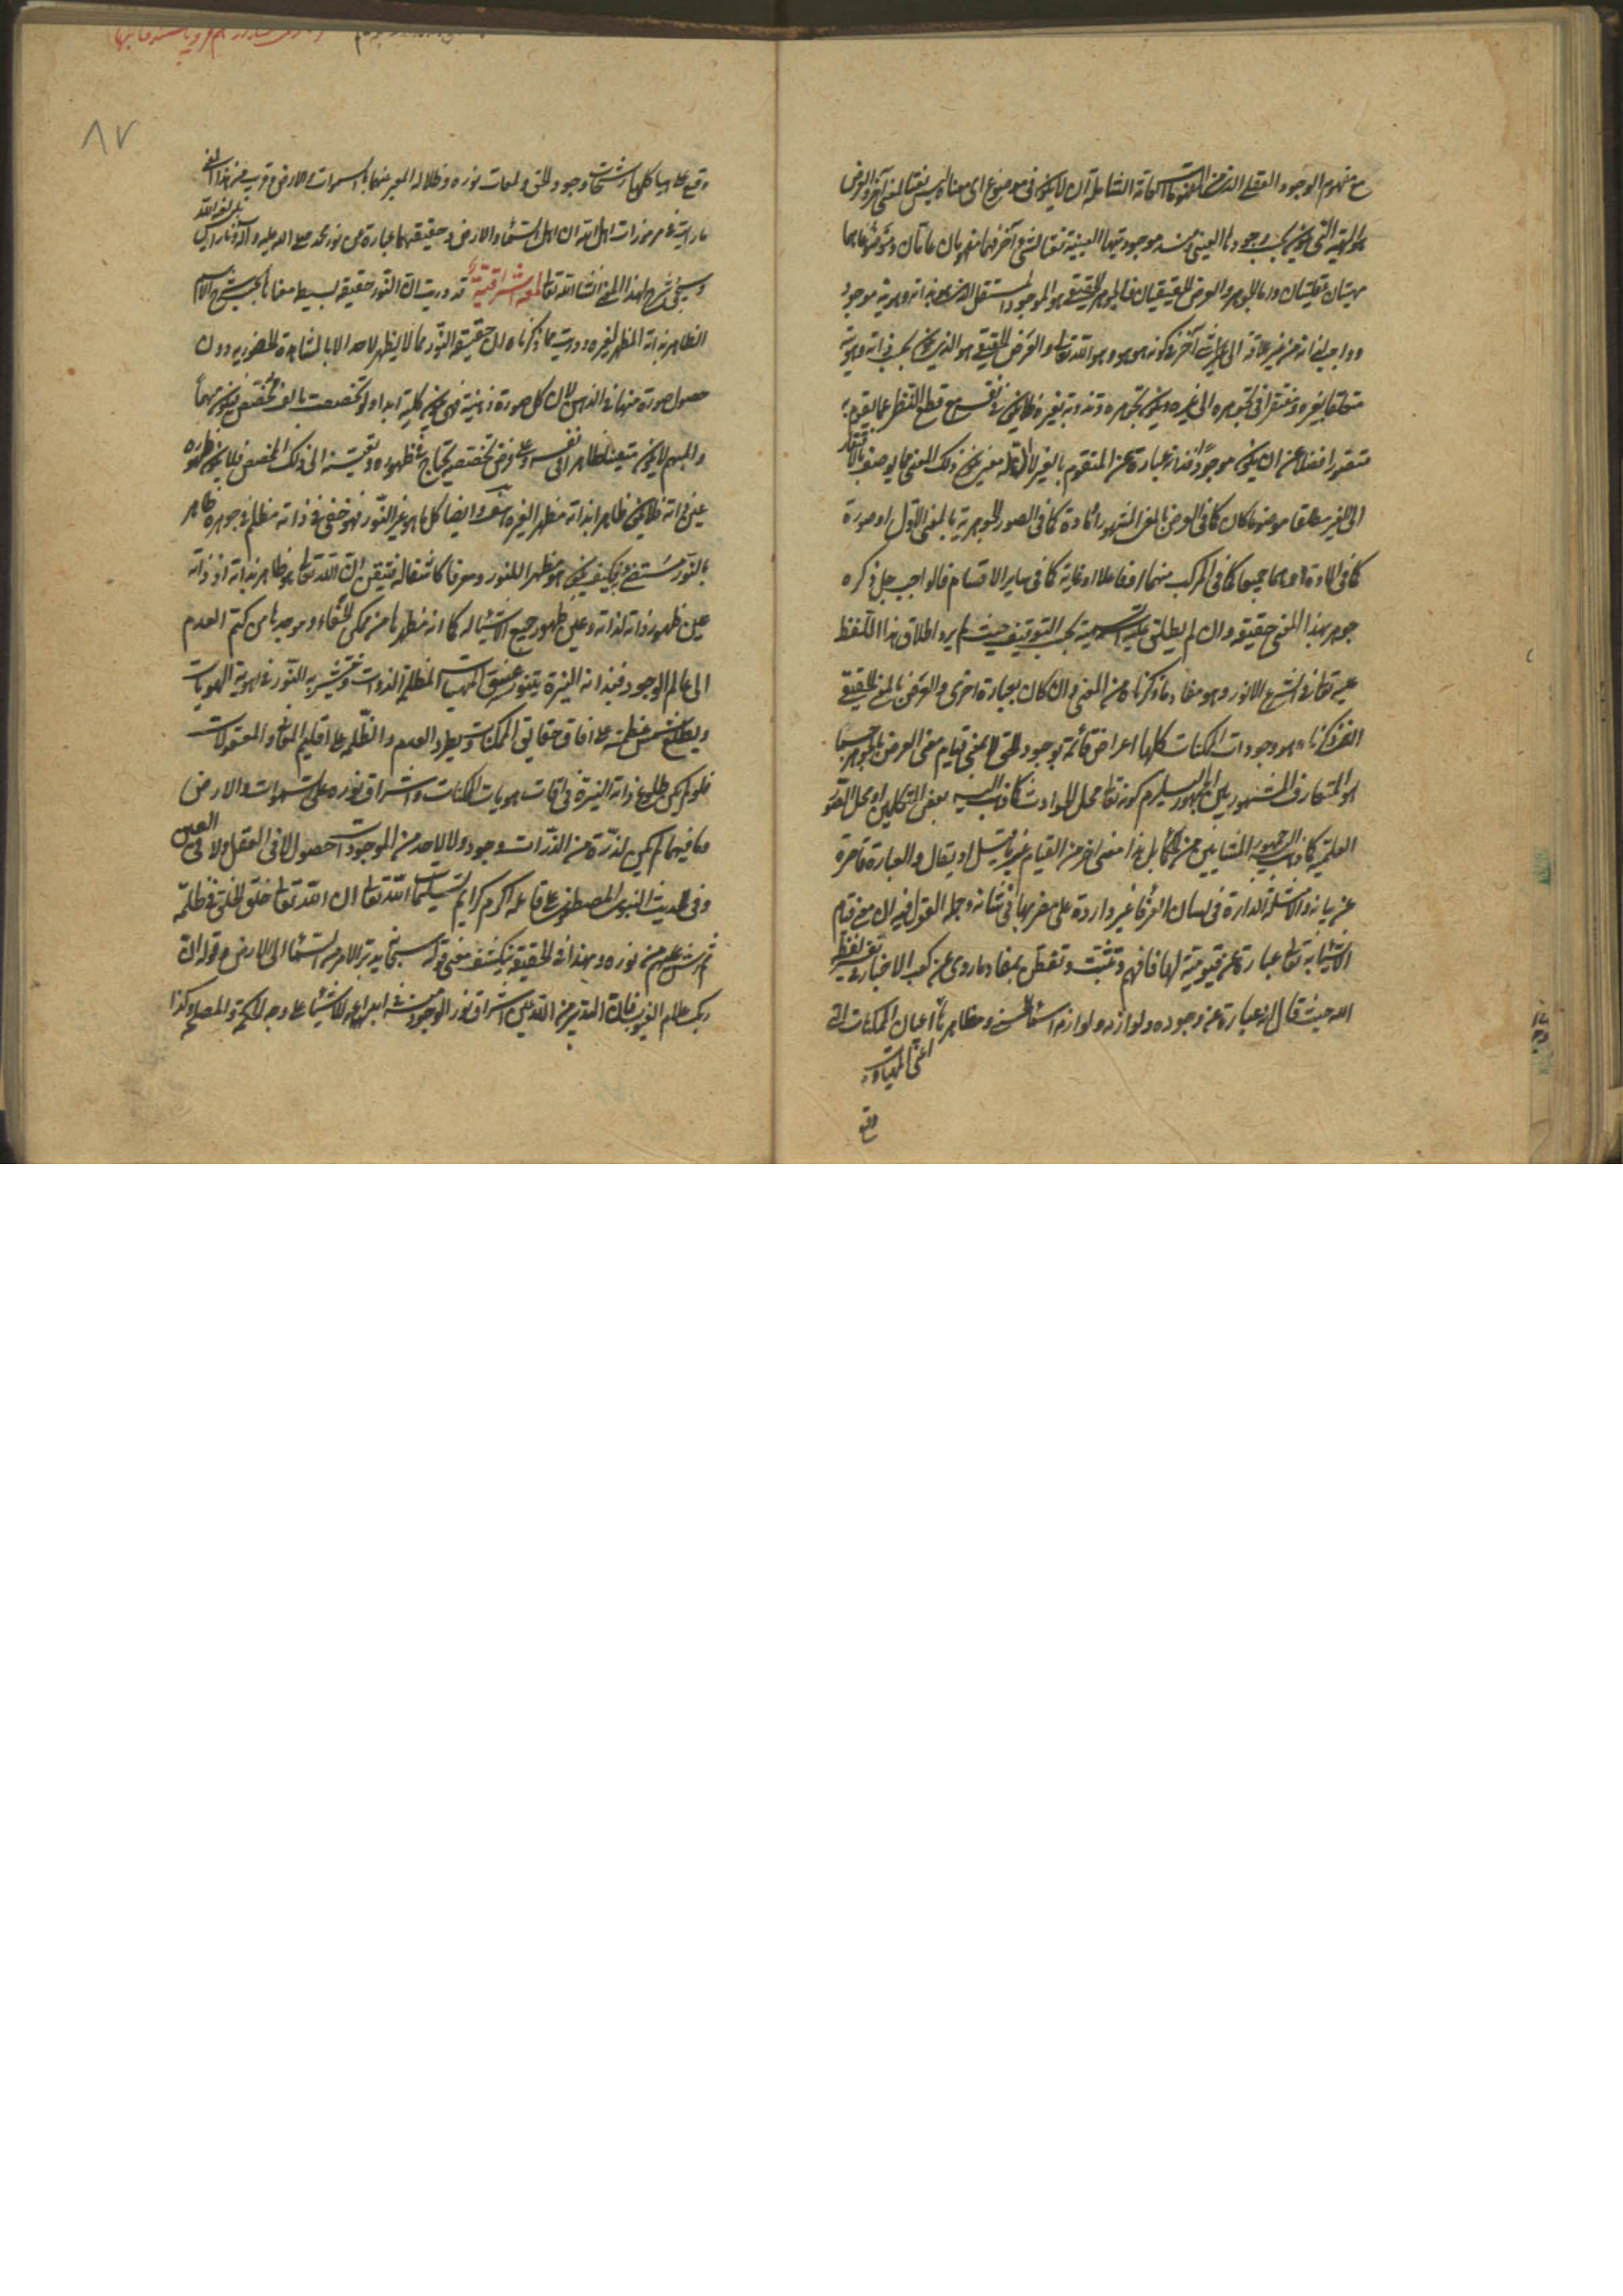 مع مفهوم الوجود العقلي الذي من المعقولات العامة الشاملة ان لا يكون في موضوع اي معناه ليس نعتا لشيء آخر والعرض
هو المهية التي يكون بحسب وجودها العيني ومنه موجوديتها العينية نعتا لشيء آخر فهما مفهومان عامان ومعروضاهما
مهيتان عقليتان واما الجوهر والعرض الحقيقيان فالجوهر الحقيقي هو الموجود المستقل الذي بذاته وهويته موجود
وواجب لذاته من غير علاقة الى آخر في كونه هو هو وهو الله تعالى والعرض الحقيقي هو الذي يكون بحسب ذاته وهويته
متعلقا بغيره ومفتقرا في تجوهره الى غيره ويكون تجوهره وتذوته بغيره فلا يكون في نفسه مع قطع النظر عما يقوم به
متصورا فضلا عن ان يكون موجودا فذاته عبارة عن المتقوم بالغير لا ان له معنى يكون ذلك المعنى مما يوصف بالافتقار
الى الغير مطلقا موضوعا كان كما في العرض بالمعنى المشهور او مادة كما في الصور الجوهرية بالمعنى الاول او صورة
كما في المادة او هما جميعا كما في المركب منهما او فاعلا او غاية كما في ساير الاقسام فالواجب جل ذكره
جوهر بهذا المعنى حقيقة وان لم يطلق عليه التسمية بحسب التوقيف حيث لم يرد اطلاق هذا اللفظ
عليه تعالى في الشرع الانور وهو مفاد ما ذكرناه من المعنى وان كان بعبارة اخرى والعرض بالمعنى الحقيقي
الذي ذكرناه هو وجودات الممكنات كلها اعراض قائمة بوجود الحق لا بمعنى قيام معنى العرض بالجوهر حسبما
هو المتعارف المشهور بين الجمهور ليلزم كونه تعالى محل الحوادث كما ذهب اليه بعض المتكلمين او محل الصور
العلمية كما ذهب اليه جمهور المشايين من الحكماء بل هذا معنى آخر من القيام غير ما قيل او يقال والعبارة قاصرة
عن بيانه والامثلة الدائرة في لسان العرفاء غير واردة على مضربها في شانه وجملة القول فيه ان معنى قيام
الاشياء به تعالى عبارة عن قيوميته لها فافهم وتثبت وتفطن بمفاد ما روي عن كعب الاحبار في تفسير لفظ
الله حيث قال انه عبارة عن وجوده ولوازمه ولوازم اسمائه الحسنى ومظاهرها اعيان الممكنات التي
اعني المهيات
وقع
٨٧
وقع على هياكلها رشحات وجود الحق ولمعات نوره وظلاله المعبر عنها بالسموات والارض وقريب من هذا المعنى
ما رايت في مرموزات اهل الله ان اهل السماء والارض وحقيقتهما عبارة من نور محمد صلى الله عليه وآله
وسيجيء شرح لهذا المعنى ان شاء الله تعالى لمعة اشراقية قد دريت ان النور حقيقة بسيطة معناها بحسب شرح الاسم
الظاهر بذاته المظهر لغيره ودريت مما ذكرناه ان حقيقة النور مما لا يظهر لاحد الا بالمشاهدة الحضورية دون
حصول صورة منها في الذهن لان كل صورة ذهنية فهي يكون كلية ابدا ولو تخصصت بالف تخصص فيكون مبهما
والمبهم لا يكون متعينا ظاهرا في نفسه وعلى فرض تخصصه يحتاج في ظهوره وتعينه الى ذلك المخصص فلا يكون ظهوره
عين ذاته فلا يكون ظاهرا بذاته مظهرا لغيره هف وايضا كل ما هو غير النور فهو خفي في ذاته مظلم في جوهره ظاهر
بالنور مستضيء به فكيف يكون هو مظهرا للنور ومعرفا كاشفا له فتيقن ان الله تعالى هو ظاهر بذاته اذ ذاته
عين ظهور ذاته لذاته وعين ظهور جميع الاشياء له كما انه مظهرها من مكمن الخفاء وموجدها من كتم العدم
الى عالم الوجود فبذاته النيرة يتنور غسق المهيات المظلمة الذوات وينتشر به النور في اهوية الهويات
ويطلع شمس عظمته على آفاق حقائق الممكنات ويطرد العدم والظلمة عن اقليم المعاني والمعقولات
فلو لم يكن طلوع ذاته النيرة في آفات هويات الممكنات واشراق نوره على السموات والارض
وما فيهما لم يكن لذرة من الذرات وجود ولا لاحد من الموجودات حصول لا في العقل ولا في العين
وفي الحديث النبوي المصطفوي على قائله اكرم كرايم تسليمات الله تعالى ان الله تعالى خلق الخلق في ظلمة
ثم رش عليهم من نوره وبهذا في الحقيقة ينكشف معنى قوله سبحانه يدبر الامر من السماء الى الارض وقوله ان
ربك علام الغيوب فان التدبير من الله عين اشراق نور الوجود منه في ابداعه للاشياء على وجه الحكمة والمصلحة وكذا